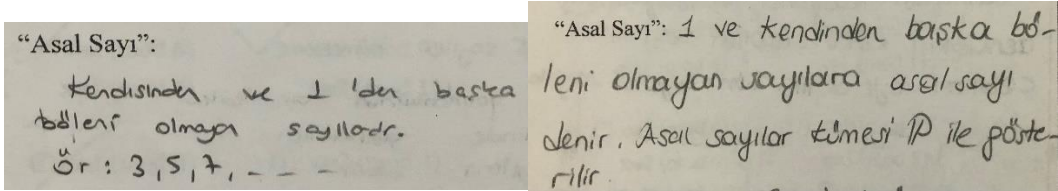 “Asal Sayı”:
Kendisinden ve 1 'den başka
böleni olmayan sayılardır.
Ör : 3,5,7, - - -
“Asal Sayı”: 1 ve kendinden başka bö-
leni olmayan sayılara asal sayı
denir. Asal sayılar kümesi P ile göste-
rilir